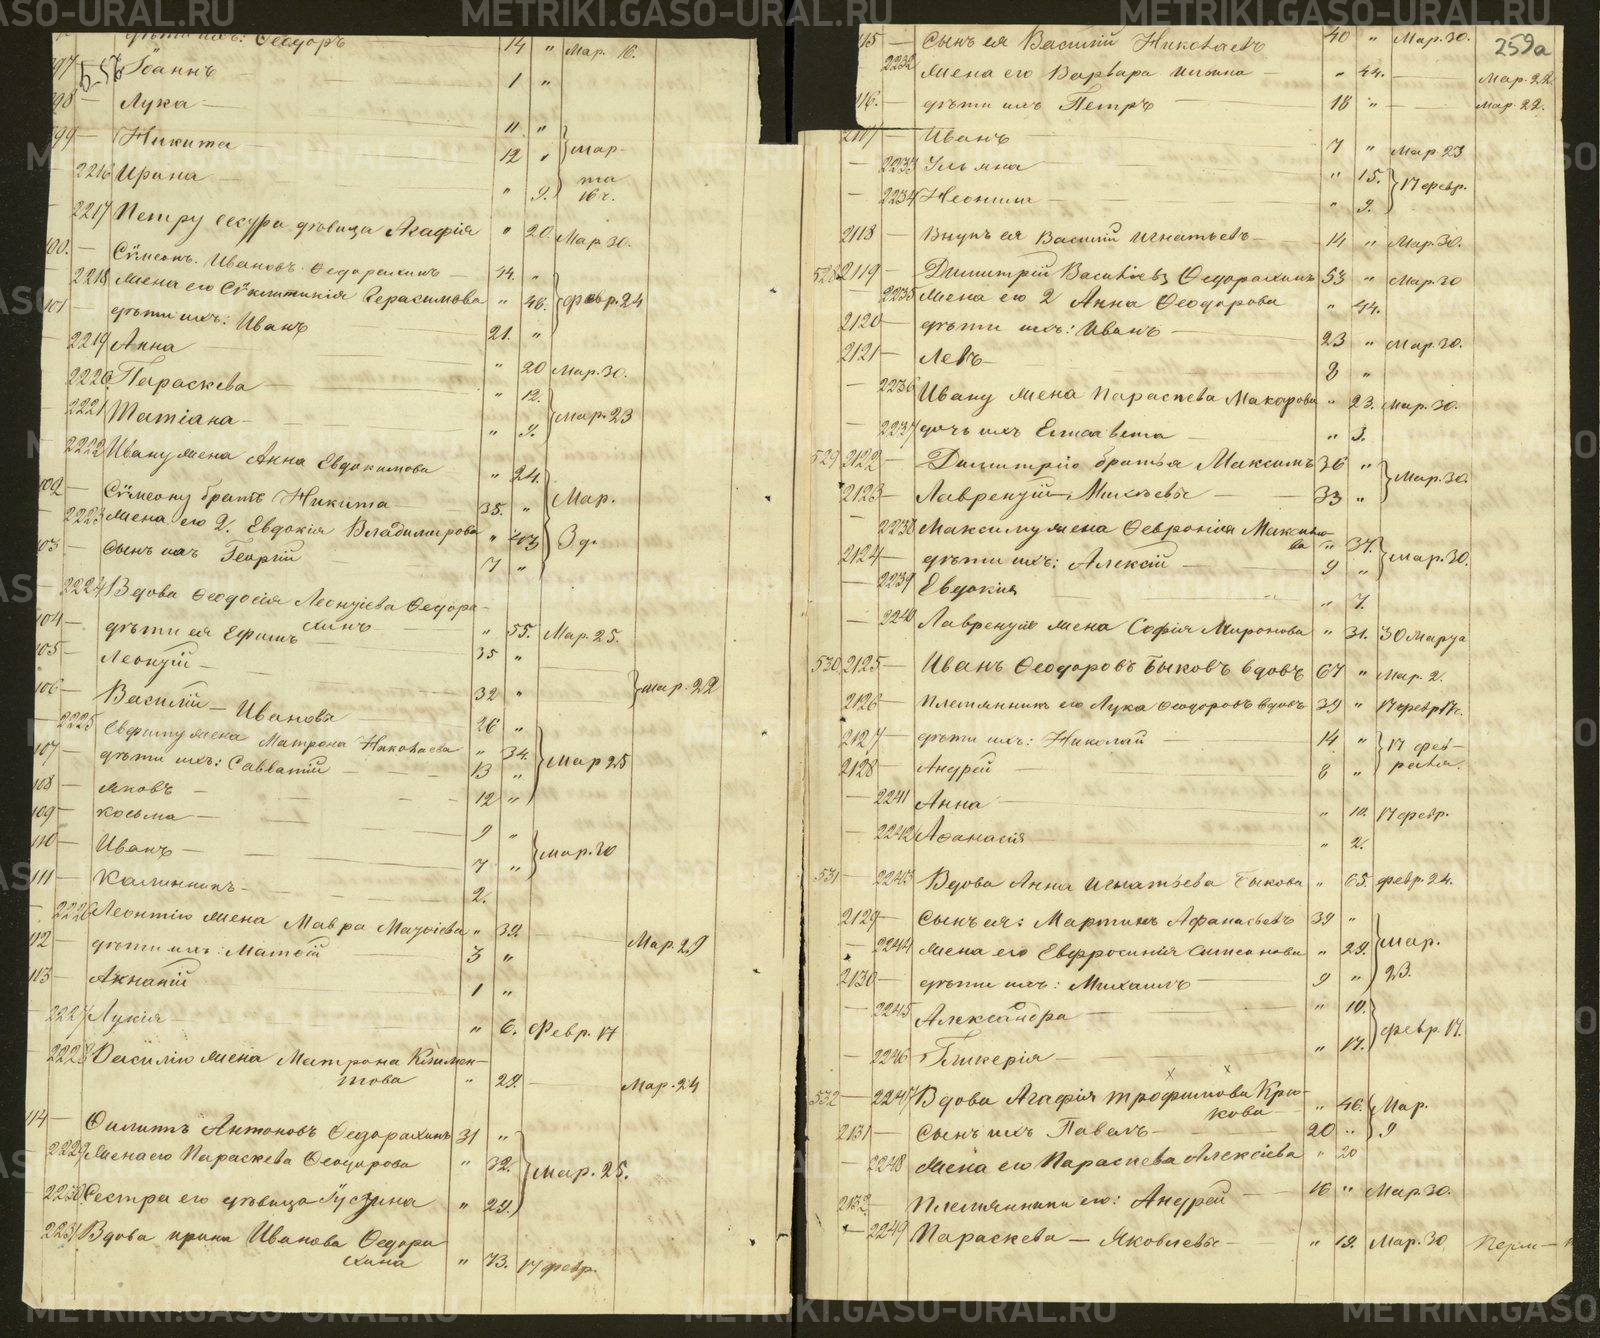 дѣти ихъ: Ѳеодоръ 14 " Мар. 16.
Б-56
97 Іоаннъ 1 "
98 — Лука —
99 — Никита — 11 "
12 " Мар-
2216 Ирина — " 9. та 16 ч.
2217 Петру сестра дѣвица Агафія " 20. Мар. 30.
100. — Сѵмеонъ Ивановъ Ѳедорахинъ — 44. "
2218 Жена его Сѵнклитикія Герасимова " 46. февр. 24
101 — дѣти ихъ: Иванъ 21. "
2219 Анна " 20 Мар. 30.
2220 Параскева " 12.
2221 Татіана — " 9. Мар. 23
2222 Ивану жена Анна Евдокимова " 24.
102 — Сѵмеону братъ Никита 35. " Мар.
2223 Жена его 2. Евдокія Владимирова " 43 30.
103 — Сынъ ихъ Георгій 7 "
2224 Вдова Ѳеодосія Леонтіева Ѳедора-
хинъ " 55. Мар. 25.
104 — дѣти ея Ефимъ 35 "
105 — Леонтій — 32 " Мар. 22
106 — Василій — Ивановы 26 "
2225 Евфиму жена Матрона Николаева " 34.
107 — дѣти ихъ: Савватій 13 " Мар 25
108 — Яковъ — 12 "
109 — Косьма — 9 "
110 — Иванъ — 7 " Мар. 30
111 — Каллиникъ — 2.
2226 Леонтію жена Мавра Маѳіева " 32. Мар. 29
112 — дѣти ихъ: Матѳій 3 "
113 — Ананій 1 "
2227 Лукія " 6. Февр. 17
2228 Василію жена Матрона Климен-
това " 29. — Мар. 24
114 — Филиппъ Антоновъ Ѳедорахинъ 31 "
2229 Жена его Параскева Ѳеодорова " 32. Мар. 25.
2230 Сестра его дѣвица Іустина " 29.
2231 Вдова Ирина Ивановa Ѳедора
хина " 73. 17 февр.
259а
115 — Сынъ ея Василій Николаевъ 40 " Мар. 30.
2232 Жена его Варвара Ильина — " 44. — Мар. 22
116. — дѣти ихъ Петръ 18 " — Мар. 22.
2117 — Иванъ 7 " Мар 23
— 2233 Ульяна " 15. 17 февр.
— 2234 Неонила — " 9.
2118 — Внукъ ея Василій Игнатьевъ — 14 " Мар. 30.
528 2119 — Димитрій Васильевъ Ѳедорахинъ 53 " Мар. 30
— 2235 Жена его 2 Анна Ѳеодорова " 44.
2120 — дѣти ихъ: Иванъ — 23 " Мар. 30.
2121 — Левъ — 8 "
— 2236 Ивану жена Параскева Макарова " 23. Мар. 30.
— 2237 дочь ихъ Елисавета — " 3.
529 2122 — Димитрію братья Максимъ 36 "
2123 — Лаврентій Михѣевы — 33 " Мар. 30.
— 2238 Максиму жена Ѳевронія Максимо-
ва " 37.
2124 — дѣти ихъ: Алексій — 9 " Мар. 30.
— 2239 Евдокия " 7.
— 2240 Лаврентію жена Софія Миронова " 31. 30 Марта
530 2125 — Иванъ Ѳеодоровъ Быковъ вдовъ 67 " Мар. 2.
2126 — Племянникъ его Лука Ѳеодоровъ вдовъ 39 " 17 февр.
2127 — дѣти ихъ: Николай — 14 " 17 фев-
2128 — Андрей 8 " раля.
— 2241 Анна — " 12. 17 февр.
— 2242 Аѳанасія " 2.
531 — 2243 Вдова Анна Игнатьева Быкова " 65. февр. 24.
2129 — Сынъ ея: Мартинъ Афанасьевъ 39 "
— 2244 Жена его Евфросинія Симеонова " 29. Мар.
2130 — дѣти ихъ: Михаилъ 9 " 23.
— 2245 Александра " 19.
— 2246 Гликерія — " 17. февр. 17.
532 — 2247 Вдова Агафія Трофимова Крю-
кова — " 46. Мар.
2131 — Сынъ ихъ Павелъ — 20 " 9
— 2248 Жена его Параскева Алексіева " 20
2132 — Племянники его: Андрей — 16 " Мар. 30.
— 2249 Параскева — Яковлевы — " 19. Мар. 30